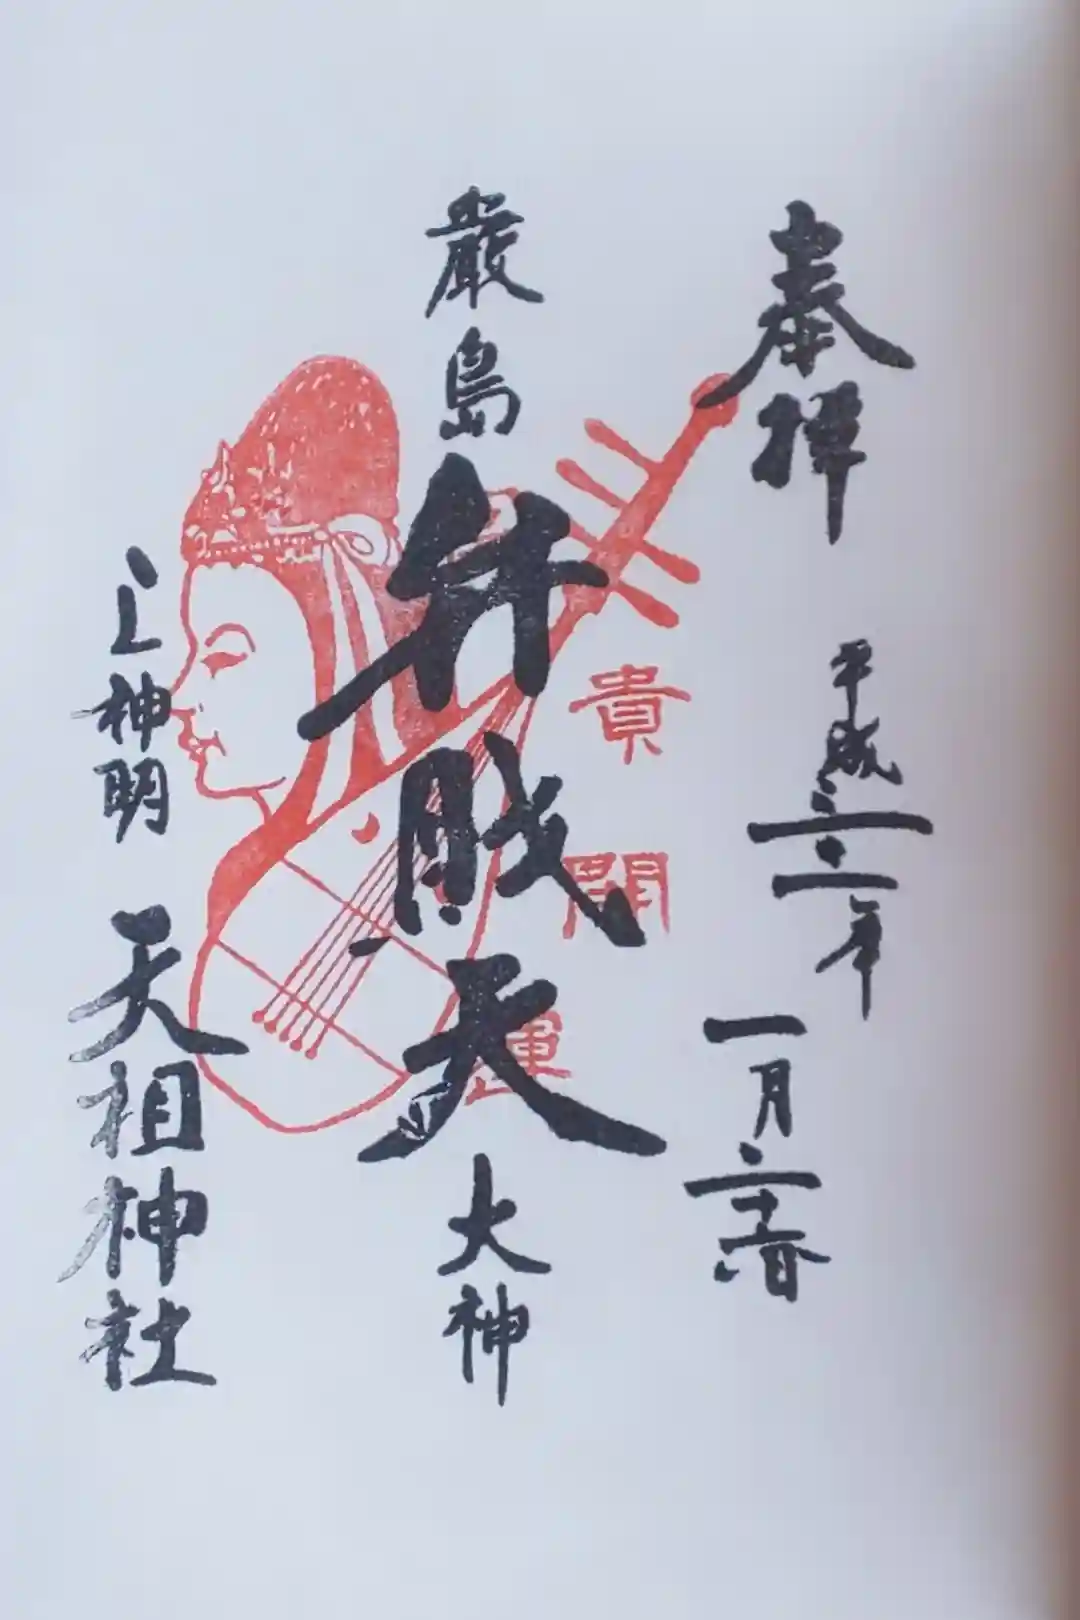 奉拝
平成
年
一月二十
日
厳島弁財天大神
貴開運
上神明
天祖神社